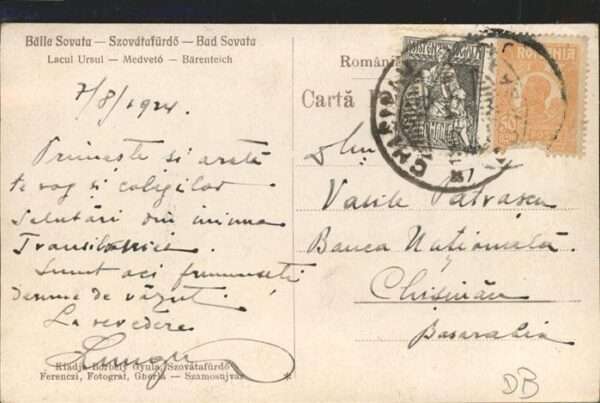 Băile Sovata — Szovátafürdő — Bad Sovata
Lacul Ursul — Medvető — Bärenteich
7/8/1924
Primește și arată
te rog și colegilor
salutări din inima
Transilvaniei.
Sunt aci frumuseți
demne de văzut.
La revedere
Kiadja Borbély Gyula, Szovátafürdő
Ferenczi, Fotograf, Gherla — Szamosujvár
*
Români
Cartă
ROMANIA
CHIȘINĂU
Vasile Patrașcu
Banca Națională.
Chișinău
Basarabia
DB